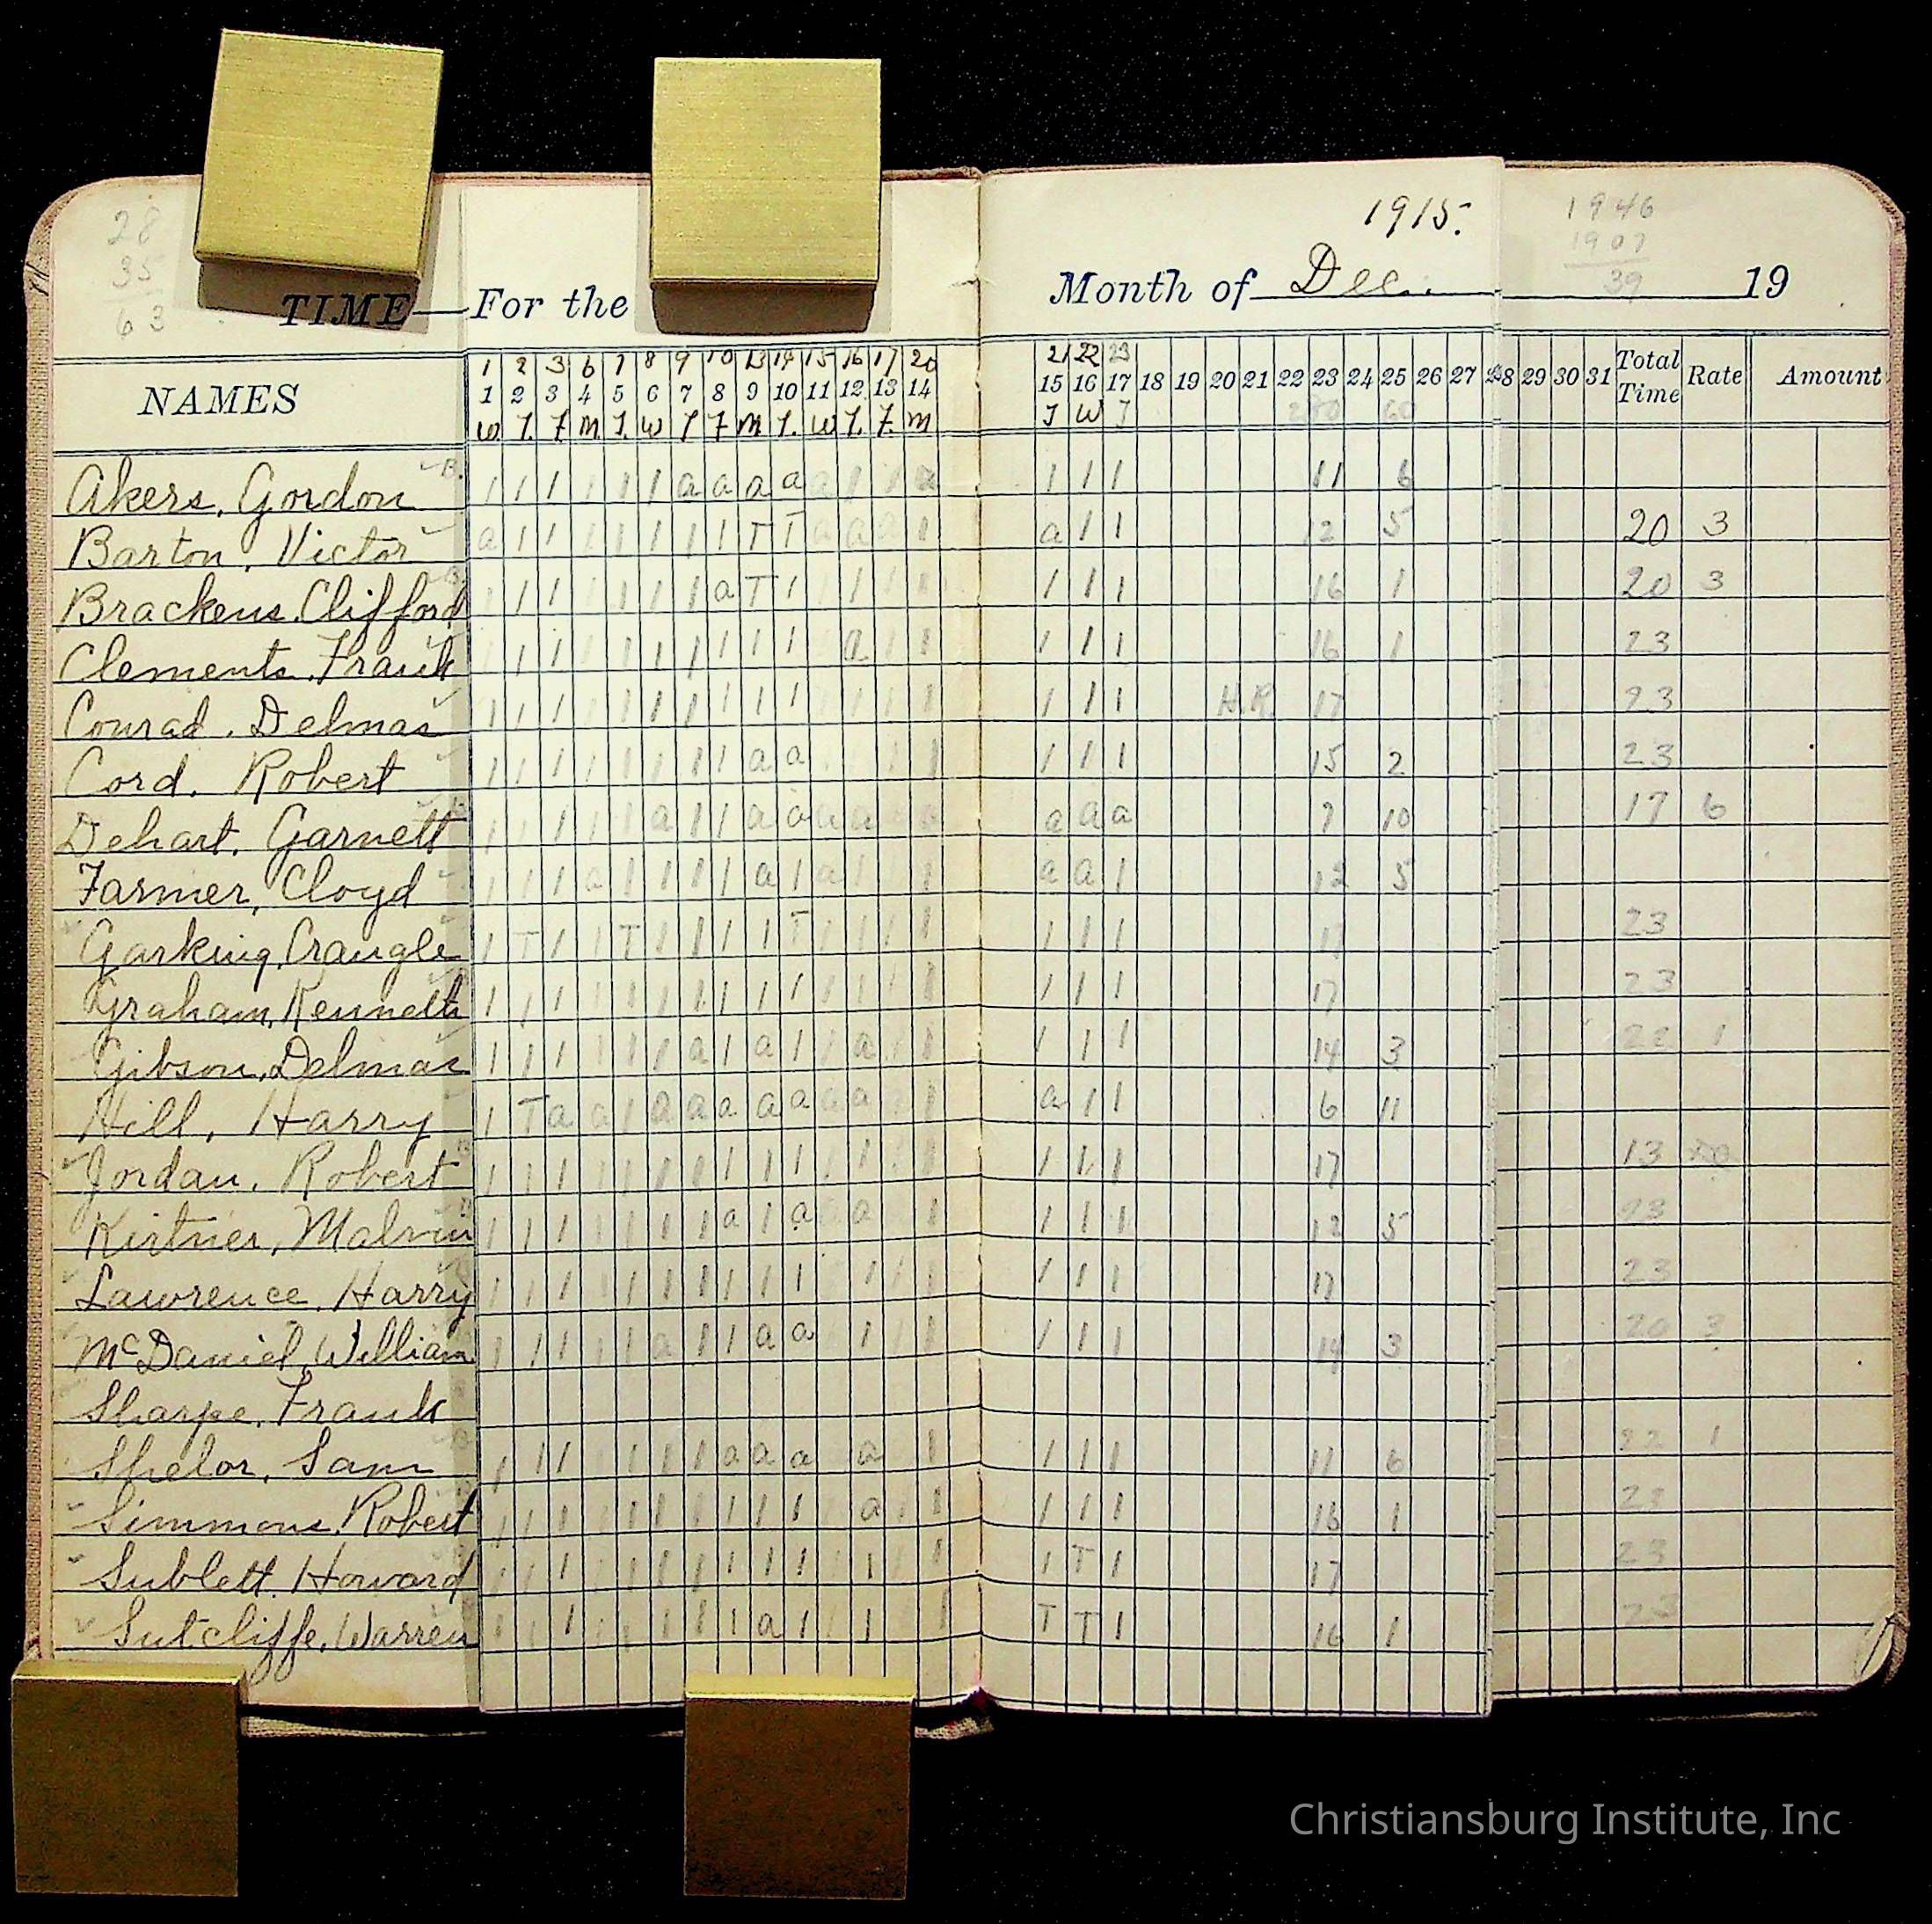 1915.
1946
1907
39
28
35
63
TIME—For the Month of Dec. 19
1 2 3 6 7 8 9 10 13 14 15 16 17 20 21 22 23
NAMES 1 2 3 4 5 6 7 8 9 10 11 12 13 14 15 16 17 18 19 20 21 22 23 24 25 26 27 28 29 30 31 Total Time Rate Amount
W T. F M T. W T F M T. W T. F. M T W T 280 60
Akers, Gordon 1 1 1 1 1 1 a a a a a 1 1 a 1 1 1 11 6
Barton, Victor a 1 1 1 1 1 1 1 T T a a a 1 a 1 1 12 5 20 3
Brackens, Clifford 1 1 1 1 1 1 a T 1 1 1 1 1 1 1 16 1 20 3
Clements, Frank 1 1 1 1 1 1 1 1 1 a 1 1 1 1 1 16 1 23
Conrad, Delmas 1 1 1 1 1 1 1 1 1 1 1 1 1 1 1 1 1 H.R. 17 23
Cord, Robert 1 1 1 1 1 1 1 1 a a 1 1 1 1 1 15 2 23
Dehart, Garnett 1 1 1 1 1 a 1 1 a a a a a a a a a 7 10 17 6
Farmer, Cloyd 1 1 1 a 1 1 1 1 a 1 a 1 1 1 a a 1 12 5
Garking, Craugle 1 T 1 1 T 1 1 1 1 T 1 1 1 1 1 1 1 17 23
Graham, Kenneth 1 1 1 1 1 1 1 1 1 1 1 1 1 1 1 1 1 17 23
Gibson, Delmas 1 1 1 1 1 1 a 1 a 1 1 a 1 1 1 1 1 14 3 22 1
Hill, Harry 1 T a a 1 a a a a a a a 1 1 a 1 1 6 11
Jordan, Robert 1 1 1 1 1 1 1 1 1 1 1 1 1 1 1 1 1 17 13
Kirtner, Malvin 1 1 1 1 1 1 1 a 1 a a a 1 1 1 1 12 5 23
Lawrence, Harry 1 1 1 1 1 1 1 1 1 1 1 1 1 1 1 1 17 23
McDaniel, William 1 1 1 1 1 a 1 1 a a 1 1 1 1 1 1 14 3 20 3
Sharpe, Frank
Shelor, Sam 1 1 1 1 1 1 1 a a a a 1 1 1 1 11 6 22 1
Simmons, Robert 1 1 1 1 1 1 1 1 1 1 a 1 1 1 1 1 16 1 23
Sublett, Howard 1 1 1 1 1 1 1 1 1 1 1 1 1 1 1 T 1 17 23
Sutcliffe, Warren 1 1 1 1 1 1 1 1 a 1 1 1 1 T T 1 16 1 23
Christiansburg Institute, Inc